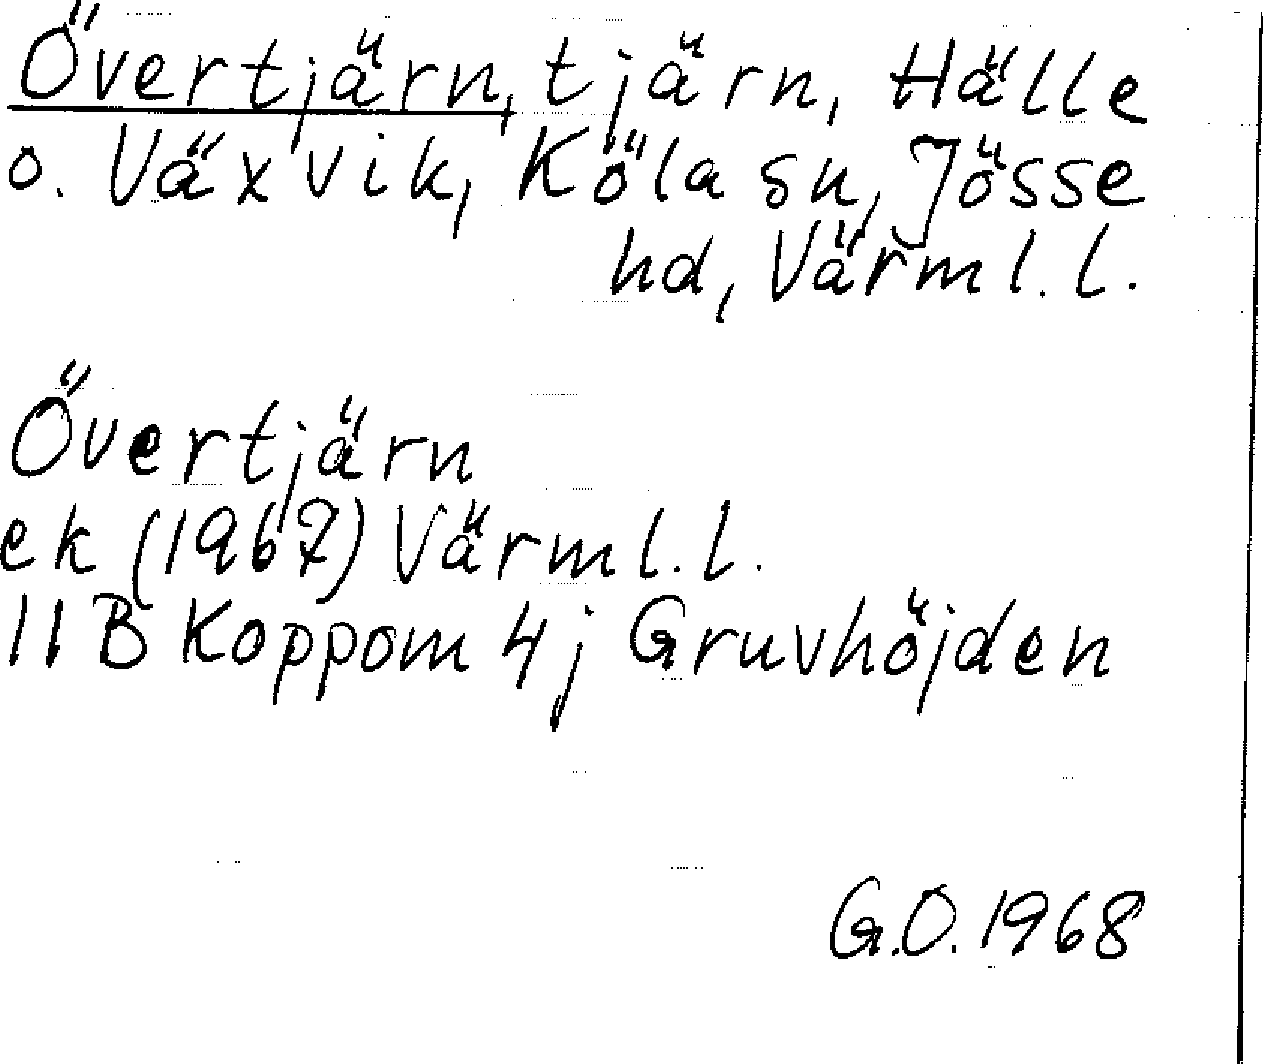 Övertjärn, tjärn, Hälle
o. Växvik, Köla sn, Jösse
hd, Värml. l.
Övertjärn
ek (1967) Värml. l.
11 B Koppom 4j Gruvhöjden
G.O. 1968